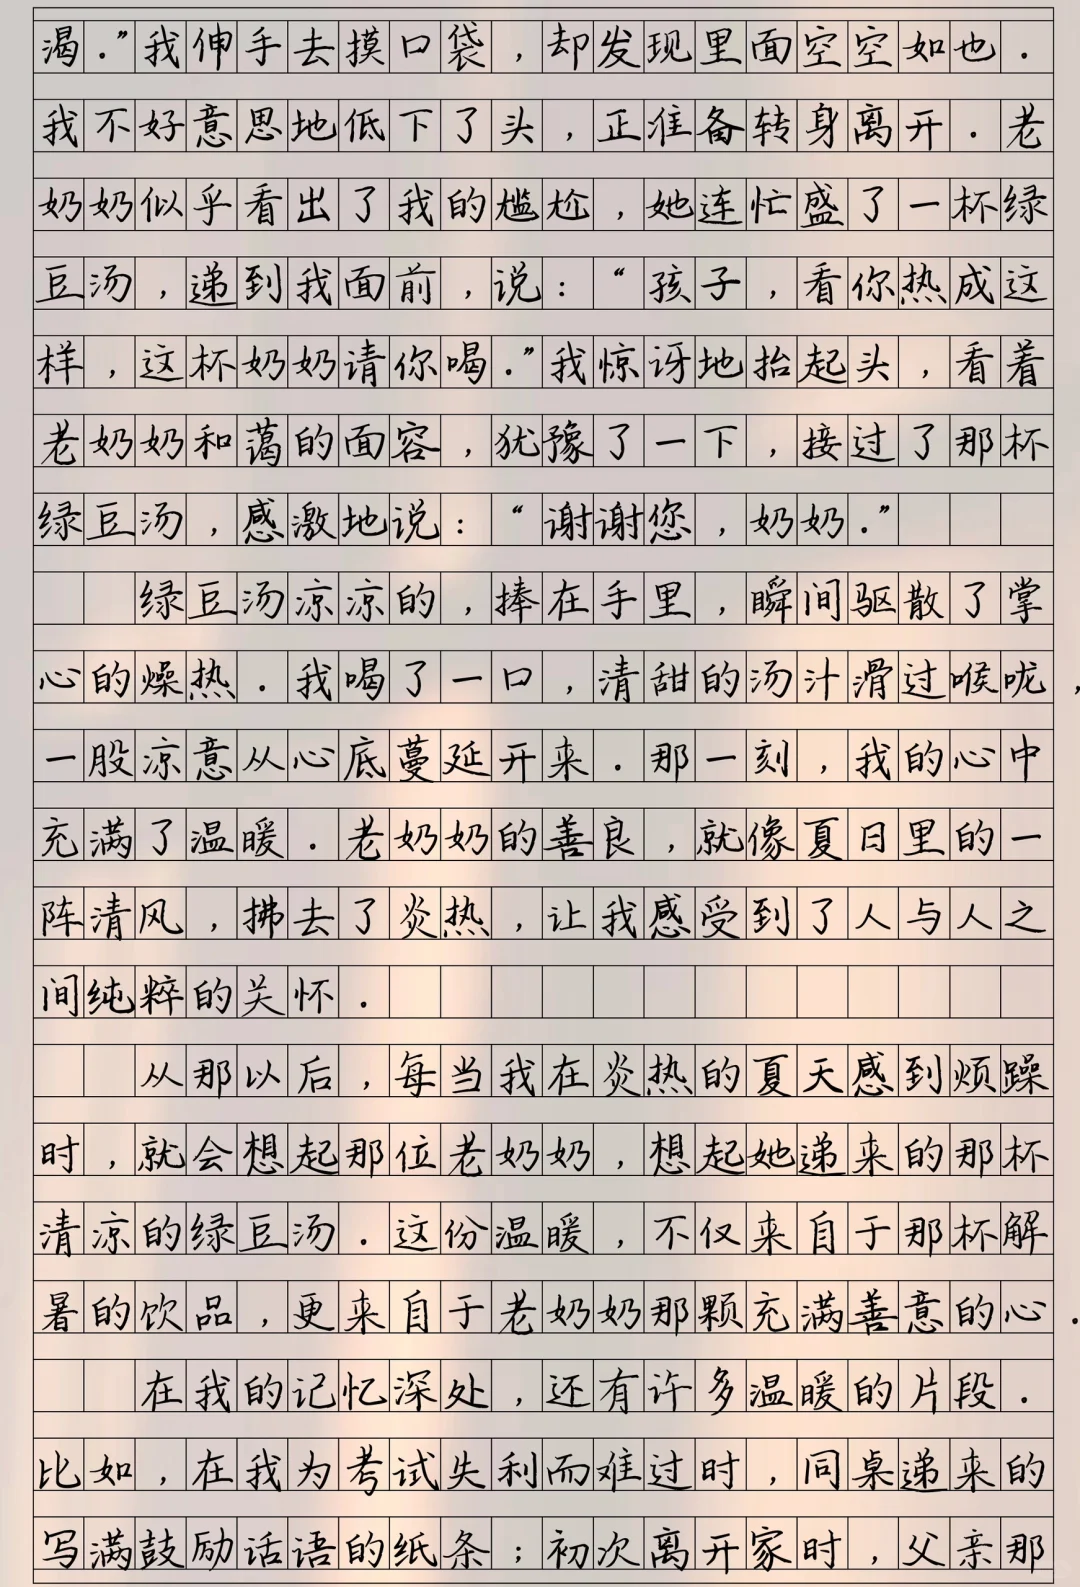 渴.”我伸手去摸口袋，却发现里面空空如也.
我不好意思地低下了头，正准备转身离开.老
奶奶似乎看出了我的尴尬，她连忙盛了一杯绿
豆汤，递到我面前，说：“孩子，看你热成这
样，这杯奶奶请你喝.”我惊讶地抬起头，看着
老奶奶和蔼的面容，犹豫了一下，接过了那杯
绿豆汤，感激地说：“谢谢您，奶奶.”
绿豆汤凉凉的，捧在手里，瞬间驱散了掌
心的燥热.我喝了一口，清甜的汤汁滑过喉咙，
一股凉意从心底蔓延开来.那一刻，我的心中
充满了温暖.老奶奶的善良，就像夏日里的一
阵清风，拂去了炎热，让我感受到了人与人之
间纯粹的关怀.
从那以后，每当我在炎热的夏天感到烦躁
时，就会想起那位老奶奶，想起她递来的那杯
清凉的绿豆汤.这份温暖，不仅来自于那杯解
暑的饮品，更来自于老奶奶那颗充满善意的心.
在我的记忆深处，还有许多温暖的片段.
比如，在我为考试失利而难过时，同桌递来的
写满鼓励话语的纸条；初次离开家时，父亲那